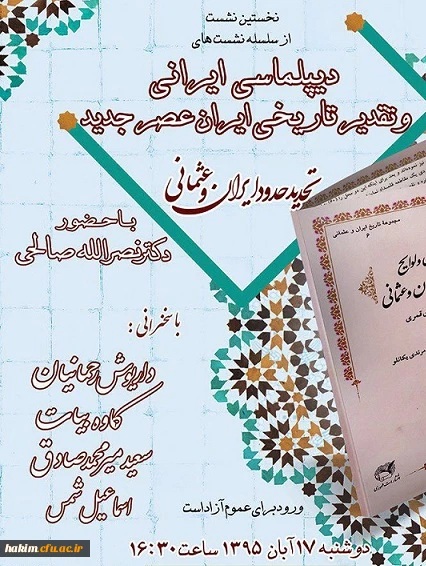 نخستین نشست
از سلسله نشست‌های
دیپلماسی ایرانی
و تقدیر تاریخی ایران عصر جدید
تحدید حدود ایران و عثمانی
با حضور
دکتر نصرالله صالحی
مجموعهٔ تاریخ ایران و عثمانی
ولوایح
ن و عثمانی
با سخنرانی:
داریوش رحمانیان
کاوه بیات
سعید میرمحمدصادق
اسماعیل شمس
ورود برای عموم آزاد است
دوشنبه ۱۷ آبان ۱۳۹۵ ساعت ۱۶:۳۰
hakim.cfu.ac.ir